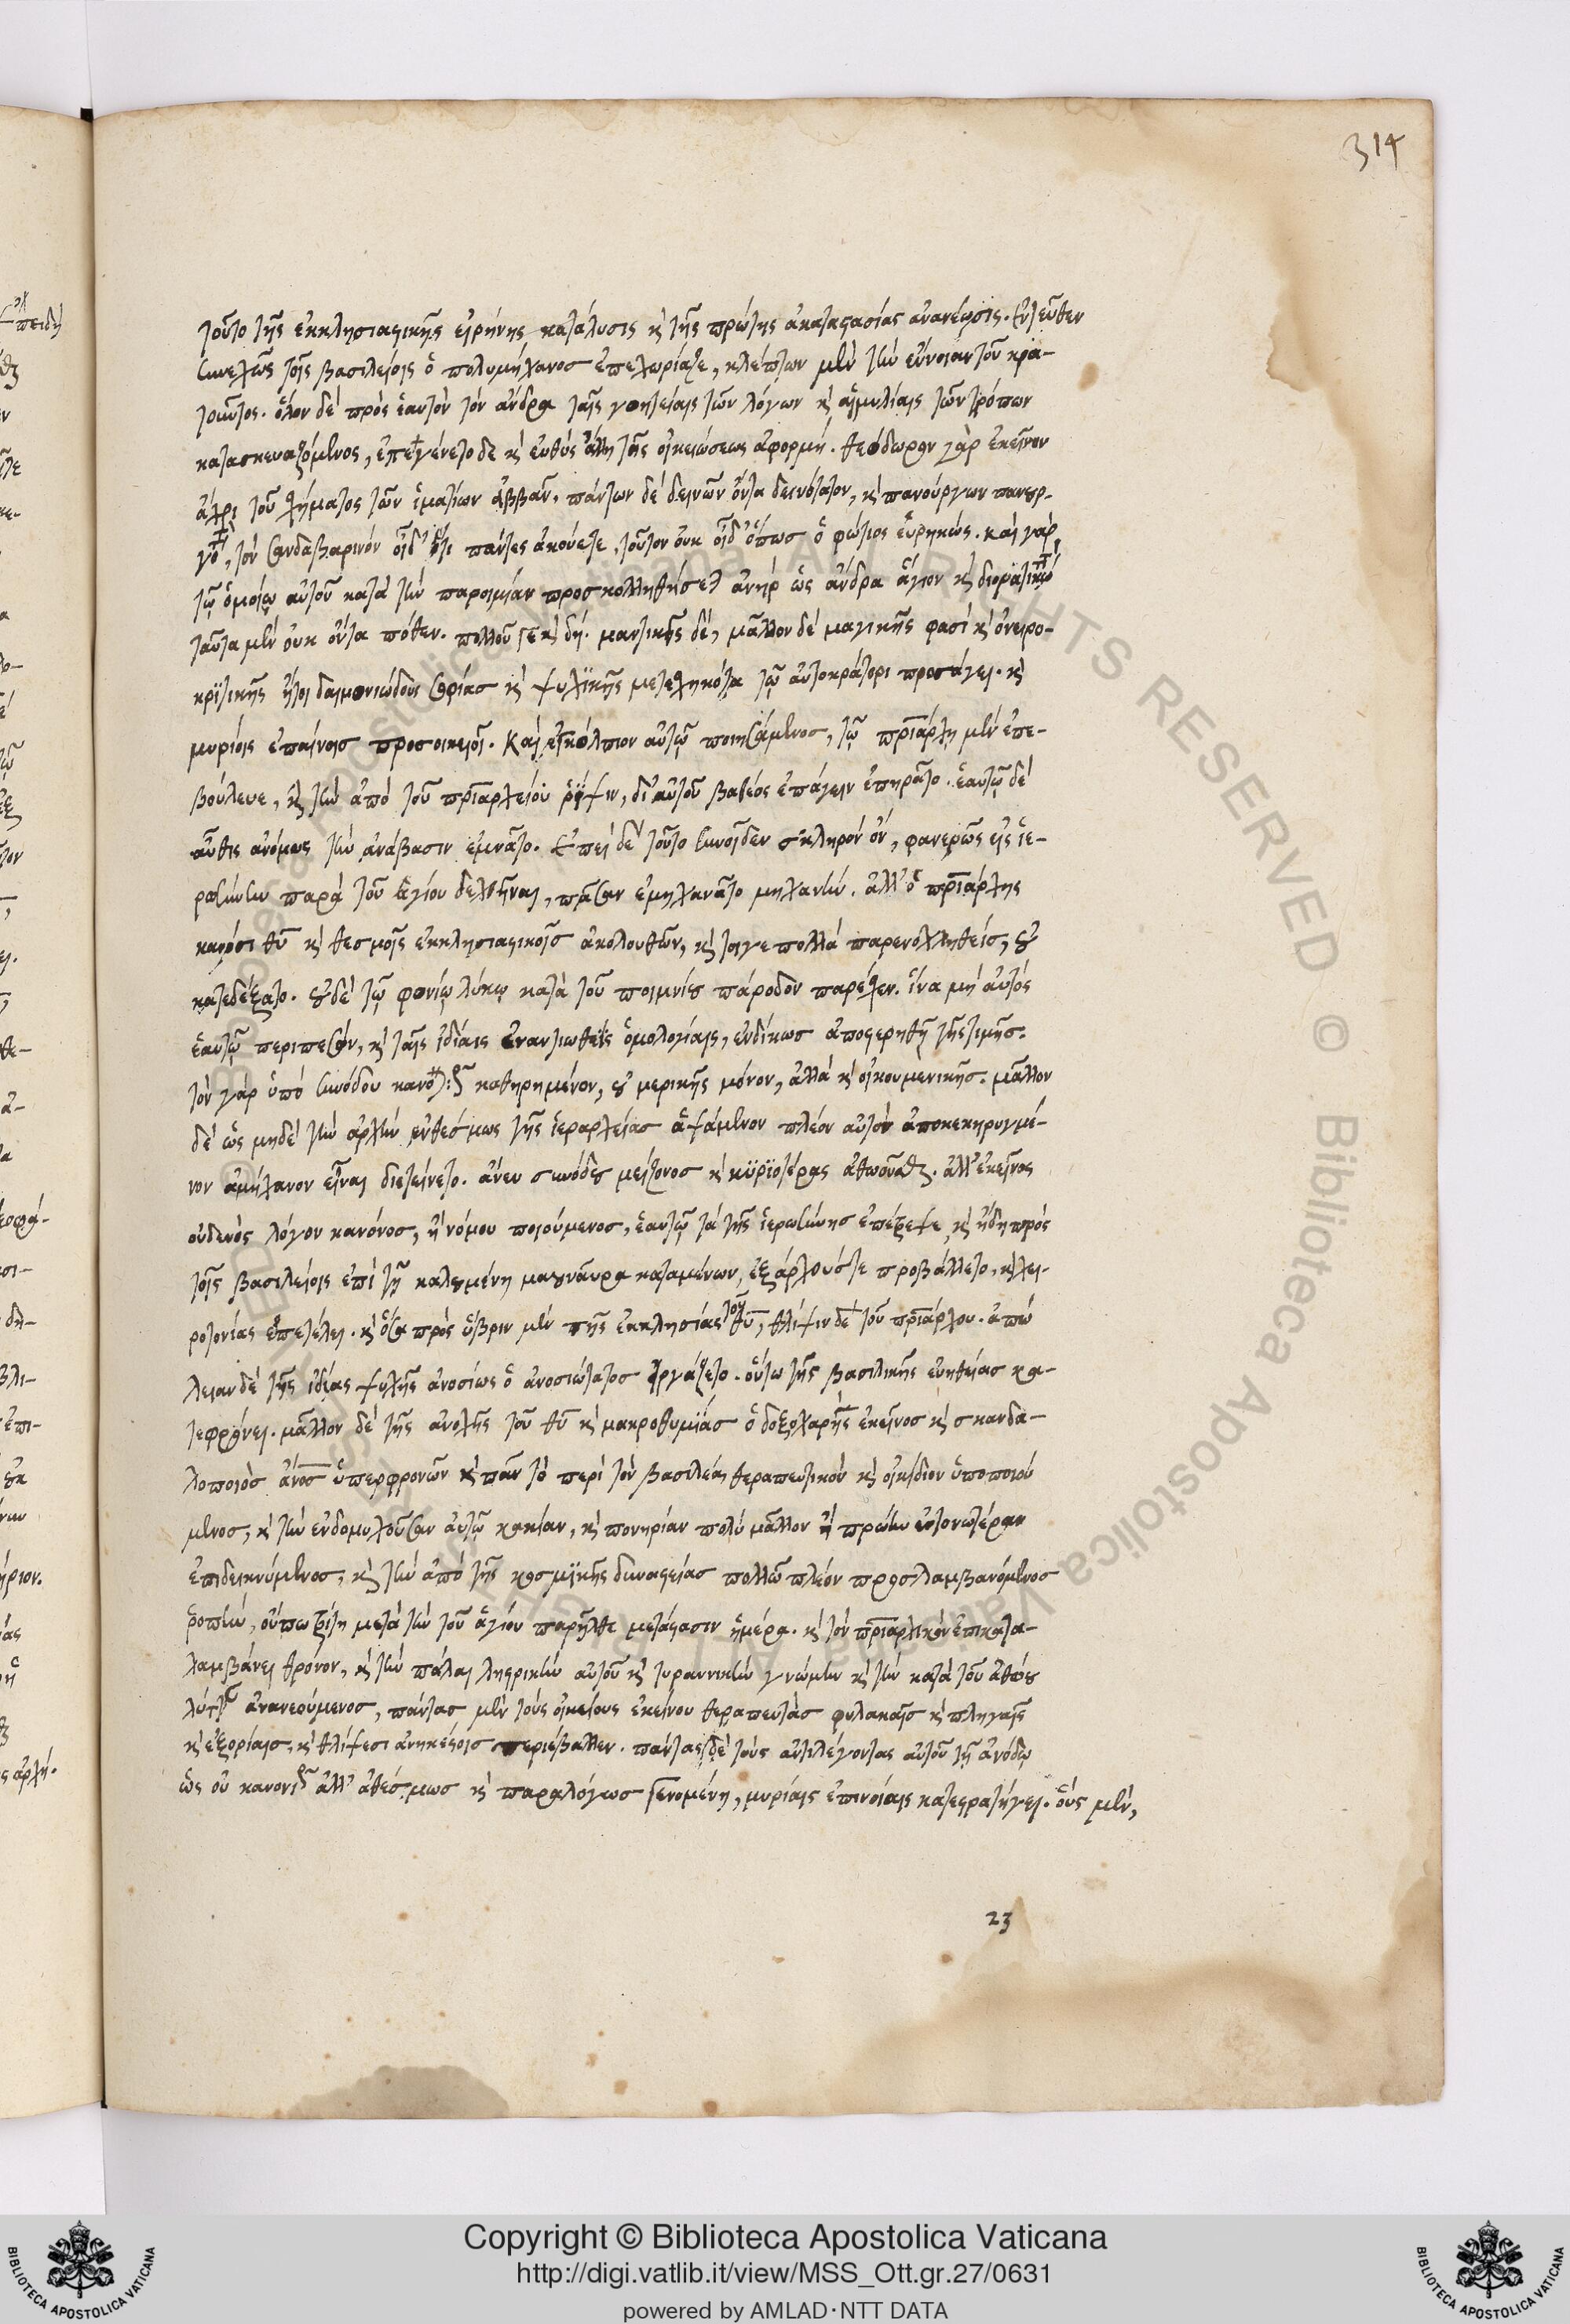 314
τοῦτο τῆς ἐκκλησιαστικῆς εἰρήνης κατάλυσις κ̀ τῆς πρώτης ἀκαταστασίας ἀνανέωσις. ἐντεῦθεν
συνεχῶς τοῖς βασιλείοις ὁ πολυμήχανος ἐπεχωρίαζε, κλέπτων μὲν τὴν εὔνοιαν τοῦ κρα-
τοῦντος. ὅλον δὲ πρὸς ἑαυτὸν τὸν ἄνδρα ταῖς γοητείαις τῶν λόγων κ̀ αἱμυλίαις τῶν τρόπων
κατασκευαζόμενος, ἐπεγένετο δὲ κ̀ εὐθὺς ἄλλη τῆς οἰκειώσεως ἀφορμή. θεόδωρον γὰρ ἐκεῖνον
ἄχρι τοῦ σχήματος τῶν ἱματίων ἀββᾶν, πάντων δὲ δεινῶν ὄντα δεινότατον, κ̀ πανούργων πανουρ-
γό, τὸν σανδαβαρινὸν οἶδ' ὅτι πάντες ἀκούετε, τοῦτον οὐκ οἶδ' ὅπως ὁ φώτιος εὑρηκώς. καὶ γὰρ
τῷ ὁμοίῳ αὐτοῦ κατὰ τὴν παροιμίαν προσκολληθήσετ ἀνὴρ ὡς ἄνδρα ἅγιον κ̀ διορατικὸ
ταῦτα μὲν οὐκ ὄντα πόθεν. πολλοῦ γε κ̀ δή. μαντικῆς δὲ, μᾶλλον δὲ μαγικῆς φασὶ κ̀ ὀνειρο-
κρϊτικῆς ἤτοι δαιμονιώδους σοφίας κ̀ ψυχϊκῆς μετεσχηκότα τῷ αὐτοκράτορι προσάγει. κ̀
μυρίοις ἐπαίνοις προσοικειοῖ. καὶ ἐγκόλπιον αὐτῷ ποιησάμενος, τῷ πριάρχῃ μὲν ἐπε-
βούλευε, κ̀ τὴν ἀπὸ τοῦ πριαρχείου ῥίψιν, δι' αὐτοῦ βαθέος ἐπάγειν ἐπηρᾶτο. ἑαυτῷ δὲ
αὖθις ἀνόμως τὴν ἀνάβασιν ἐμνᾶτο. ἐπεὶ δὲ τοῦτο συνοῖδεν σκληρὸν ὄν, φανερῶς εἰς ἱε-
ρωσύνην παρὰ τοῦ ἁγίου δεχθῆναι, πᾶσαν ἐμηχανᾶτο μηχανήν. ἀλλ' ὁ πριάρχης
κανόσι θυ κ̀ θεσμοῖς ἐκκλησιαστικοῖς ἀκολουθῶν, κ̀ τοιγε πολλὰ παρενοχληθείς, ου
κατεδέξατο. ουδὲ τῷ φονίῳ λύκῳ κατὰ τοῦ ποιμνίου πάροδον παρέσχεν. ἵνα μὴ αὐτὸς
ἑαυτῷ περιπεσών, κ̀ ταῖς ἰδίαις ἐναντιωθεὶς ὁμολογίαις, ἐνδίκως ἀποστερηθῇ τῆς τιμῆς.
τὸν γὰρ ὑπὸ συνόδου καθηρημένον, ου μερικῆς μόνον, ἀλλὰ κ̀ οἰκουμενικῆς. μᾶλλον
δὲ ὡς μηδὲ τὴν ἀρχὴν ἐνθέσμως τῆς ἱεραρχείας ἁψάμενον πλέον αὐτὸν ἀποκεκηρυγμέ-
νον ἀμήχανον εἶναι διετείνετο. ἄνευ συνόδου μείζονος κ̀ κϋρϊοτέρας ἀθωοῦσθ. ἀλλ' ἐκεῖνος
οὐδενὸς λόγον κανόνος, ἢ νόμου ποιούμενος, ἑαυτῷ τὰ τῆς ἱερωσύνης ἐπέτρεψε, κ̀ ἤδη πρὸς
τοῖς βασιλείοις ἐπὶ τῇ καλουμένῃ μαγναύρα καταμένων, ἐξάρχους τε προβάλλετο, κ̀ χει-
ροτονίας ἐπετέλει. κ̀ ὅσα πρὸς ὕβριν μὲν τῆς ἐκκλησίας τοῦ θυ, θλίψιν δὲ τοῦ πριάρχου. ἀπώ
λειαν δὲ τῆς ἰδίας ψυχῆς ἀνοσίως ὁ ἀνοσιώτατος ἠργάζετο. οὕτω τῆς βασιλικῆς εὐηθείας κα-
τεφρόνει. μᾶλλον δὲ τῆς ἀνοχῆς τοῦ θυ κ̀ μακροθυμίας ὁ δοξοχαρὴς ἐκεῖνος κ̀ σκανδα-
λοποιὸς ἄνος ὑπερφρονῶν κ̀ πᾶν τὸ περὶ τὸν βασιλέα θεραπευτικὸν κ̀ οἰκίδιον ὑποποιού
μενος, κ̀ τὴν ἐνδομυχοῦσαν αὐτῷ κακίαν, κ̀ πονηρίαν πολὺ μᾶλλον ἢ πρώην εὐτονωτέραν
ἐπιδεικνύμενος, κ̀ τὴν ἀπὸ τῆς κοσμϊκῆς δυναστείας πολλῶ πλέον προσλαμβανόμενος
ῥοπὴν, οὔπω τρίτη μετὰ τὴν τοῦ ἁγίου παρῆλθε μετάστασιν ἡμέρα. κ̀ τὸν πριαρχικὸν ἐπικατα-
λαμβάνει θρόνον, κ̀ τὴν πάλαι ληστρικὴν αὐτοῦ κ̀ τυραννικὴν γνώμην κ̀ τὴν κατὰ τοῦ ἀθώου
λύτταν ἀνανεούμενος, πάντας μὲν τοὺς οἰκείους ἐκείνου θεραπευτὰς φυλακαῖς κ̀ πληγαῖς
κ̀ ἐξορίαις, κ̀ θλίψεσι ἀνηκέστοις περιέβαλλεν. πάντας δὲ τοὺς ἀντιλέγοντας αὐτοῦ τῇ ἀνόδῳ
ὡς οὐ κανονι ἀλλ' ἀθέσμως κ̀ παραλόγως γενομένῃ, μυρίαις ἐπινοίαις κατεστρατήγει. οὓς μὲν,
23
Copyright © Biblioteca Apostolica Vaticana
http://digi.vatlib.it/view/MSS_Ott.gr.27/0631
powered by AMLAD·NTT DATA